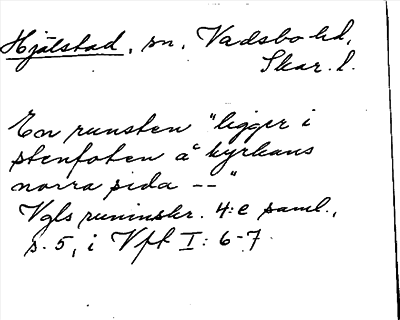 Hjälstad, sn, Vadsbo hd,
Skar. l.
En runsten "ligger i
stenfoten å kyrkans
norra sida -- "
Vgls runinskr. 4:e saml.,
s. 5, i Vft I: 6-7.